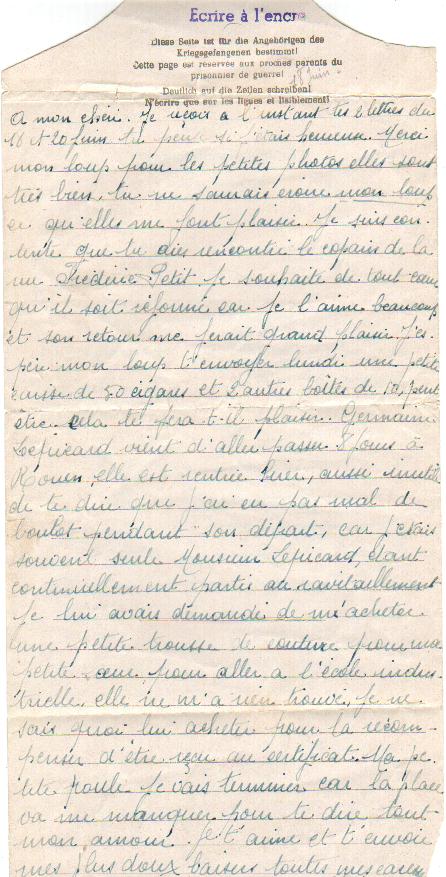 Ecrire à l'encre
Diese Seite ist für die Angehörigen des
Kriegsgefangenen bestimmt!
Cette page est réservée aux proches parents du
prisonnier de guerre!
18 Juin
Deutlich auf die Zeilen schreiben!
N'écrire que sur les lignes et lisiblement!
A mon chéri. Je reçois à l'instant tes 2 lettres du
16 et 20 Juin si j'étais heureuse. Merci
mon loup pour les petites photos elles sont
très bien, tu ne saurais croire mon loup
ce qu'elles me font plaisir. Je suis con-
tente que tu aies rencontré le copain de la
rue Frédéric Petit je souhaite de tout cœur
qu'il soit réformé car je l'aime beaucoup
et son retour me ferait grand plaisir J'es-
père mon loup t'envoyer lundi une petite
caisse de 50 cigares et 2 autres boîtes de 10, peut
être cela te fera t-il plaisir. Germaine
Lepicard vient d'aller passer 8 jours à
Rouen, elle est rentrée hier, aussi inutile
de te dire que j'ai eu pas mal de
boulot pendant son départ, car j'étais
souvent seule Monsieur Lepicard, étant
continuellement partis au ravitaillement
Je lui avais demandé de m'acheter
une petite trousse de couture pour ma
petite sœur pour aller à l'école indus-
trielle, elle ne m'a rien trouvé, je ne
sais quoi lui acheter pour la récom-
penser d'être reçu au certificat. Ma pe-
tite poule je vais terminer car la place
va me manquer pour te dire tout
mon amour. Je t'aime et t'envoie
mes plus doux baisers toutes mes